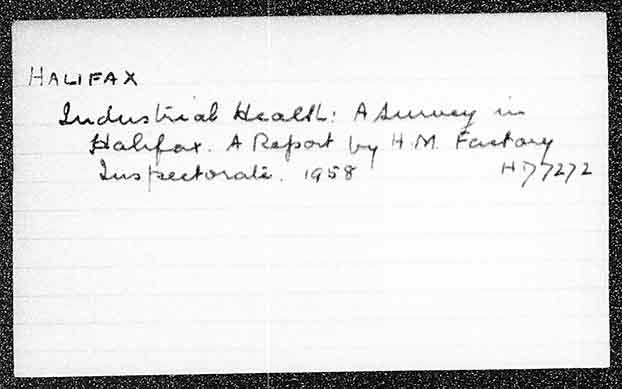 HALIFAX
Industrial Health: A Survey in
Halifax. A Report by H.M. Factory
Inspectorate. 1958 HD7272